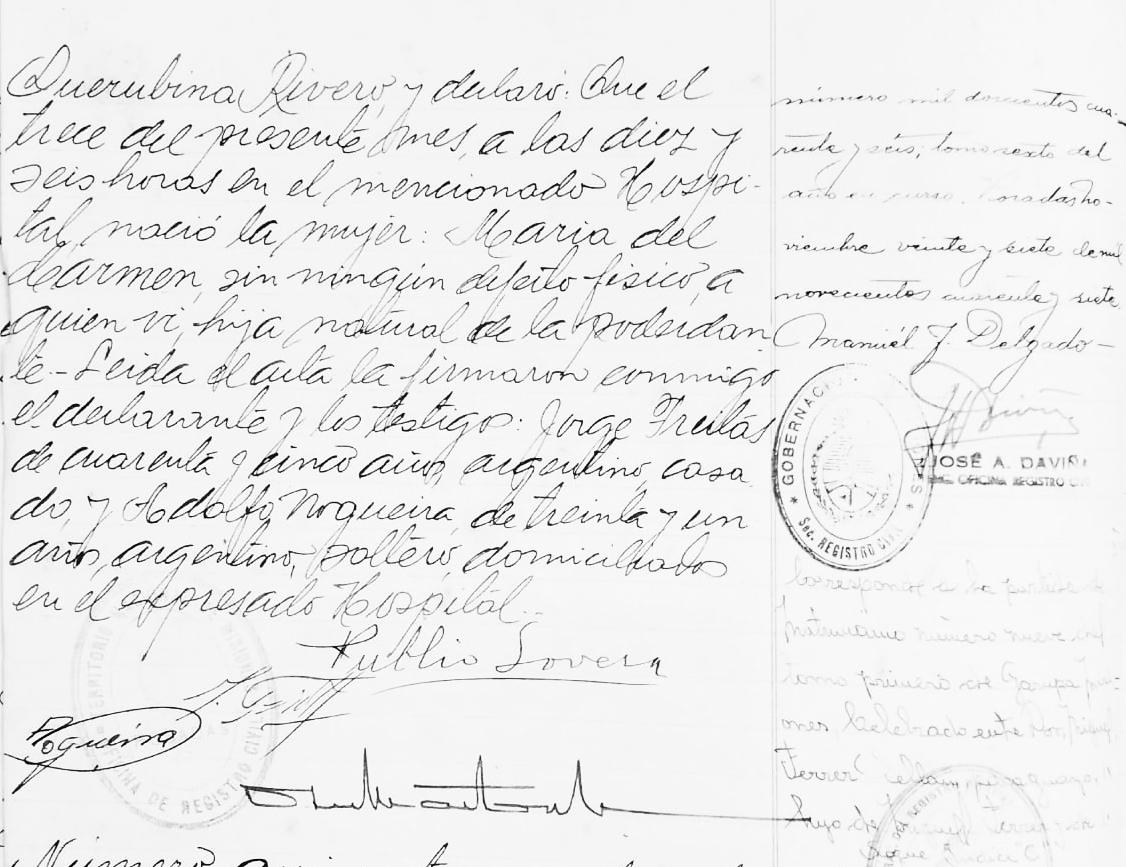 Querubina Rivero, y declaró: Que el
trece del presente mes, a las diez y
seis horas en el mencionado Hospi-
tal, nació la mujer: Maria del
Carmen, sin ningún defeto fisico, a
quien vi, hija natural de la poderdan
te - Leida el acta la firmaron conmigo
el declarante y los testigos: Jorge Freitas
de cuarenta y cinco años, argentino, casa
do, y Adolfo Nogueira, de treinta y un
años, argentino, soltero, domiciliados
en el expresado Hospital.
Publio Lovera
Nogueira
TERRITORIO
OFICINA DE REGISTRO CIVIL
Número
número mil doscientos cua-
renta y seis, tomo sexto del
año en curso. Posadas no-
viembre veinte y siete de mil
novecientos cuarenta y siete
Manuél J. Delgado -
GOBERNACI
Sec. REGISTRO CIVIL
JOSÉ A. DAVIÑA
OFICINA REGISTRO CIVIL
Corresponde a la partida de
matrimonio número nueve del
tomo primero de Garupá
ones, celebrado entre Don
Ferrer paraguayo,
hijo de